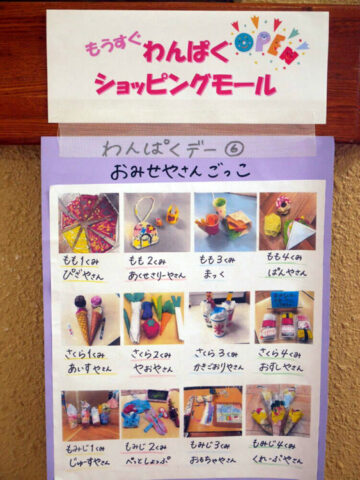 もうすぐ わんぱく OPEN
ショッピングモール
わんぱくデー⑥
おみせやさんごっこ
もも1くみ もも2くみ もも3くみ もも4くみ
ぴざやさん あくせさりーやさん まっく ぱんやさん
さくら1くみ さくら2くみ さくら3くみ さくら4くみ
あいすやさん やおやさん かきごおりやさん おすしやさん
もみじ1くみ もみじ2くみ もみじ3くみ もみじ4くみ
じゅーすやさん ぺっとしょっぷ おもちゃやさん くれーぷやさん